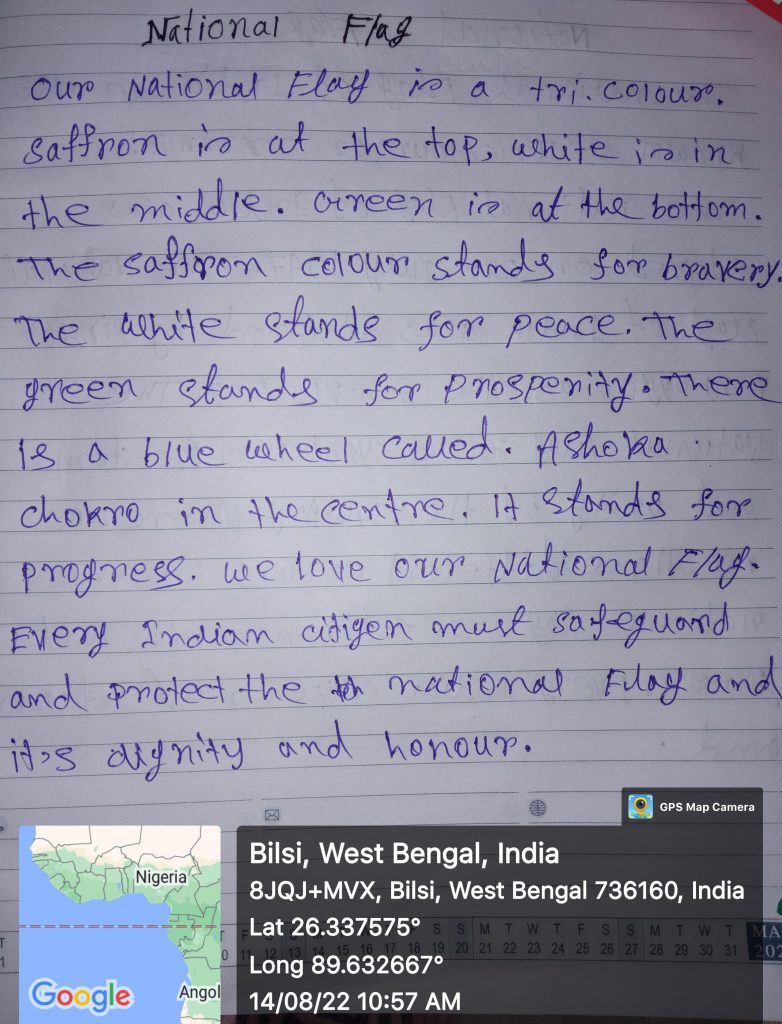 National Flag
Our National Flag is a tri.colour.
Saffron is at the top, white is in
the middle. Green is at the bottom.
The saffron colour stands for bravery.
The white stands for peace. The
green stands for prosperity. There
is a blue wheel called. Ashoka
chokro in the centre. It stands for
progress. We love our National Flag.
Every Indian citizen must safeguard
and protect the national Flag and
it's dignity and honour.
GPS Map Camera
Bilsi, West Bengal, India
8JQJ+MVX, Bilsi, West Bengal 736160, India
Lat 26.337575°
Long 89.632667°
14/08/22 10:57 AM
Nigeria
Angol
Google
S S M T W T F S S M T W T
19 20 21 22 23 24 25 26 27 28 29 30 31
MA
202